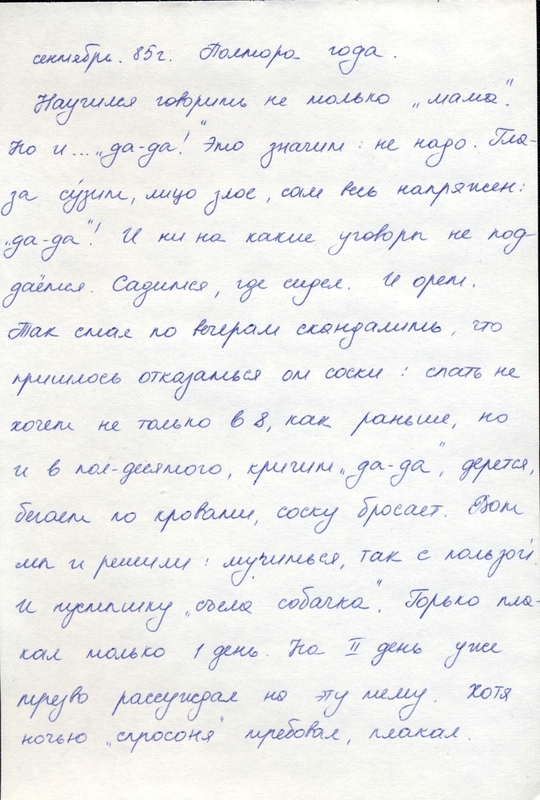 сентябрь. 85г. Полтора года.
Научился говорить не только „мама".
Но и... „да-да!" Это значит: не надо. Гла-
за сузит, лицо злое, сам весь напряжен:
„да-да"! И ни на какие уговоры не под-
даётся. Садится, где сидел. И орет.
Так стал по вечерам скандалить, что
пришлось отказаться от соски: спать не
хочет не только в 8, как раньше, но
и в пол-десятого, кричит „да-да", дерется,
бегает по кровати, соску бросает. Вот
мы и решили: мучиться, так с пользой.
И пустышку „съела собачка". Горько пла-
кал только 1 день. На II день уже
трезво рассуждал на эту тему. Хотя
ночью „спросоня" требовал, плакал.